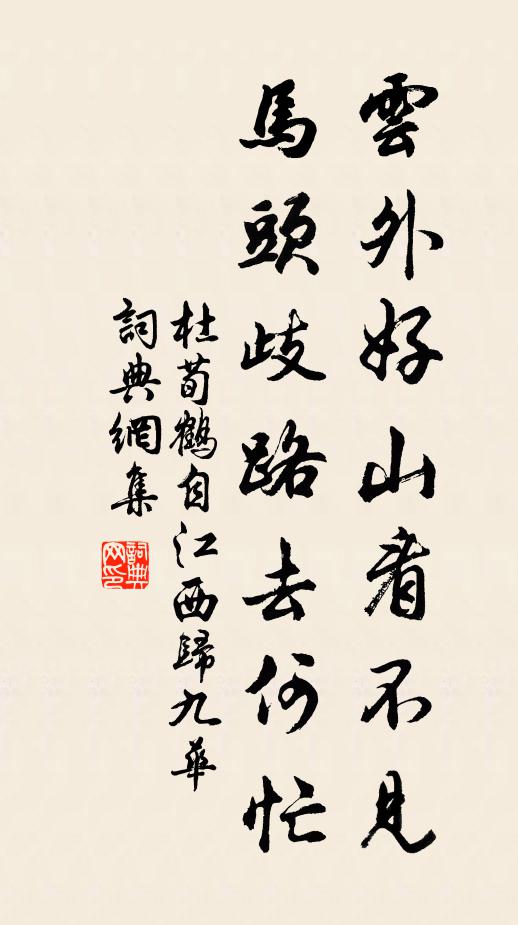 雲外好山看不見
馬頭歧路去何忙
杜荀鶴自江西歸九華
詞典網集
詞典
网印